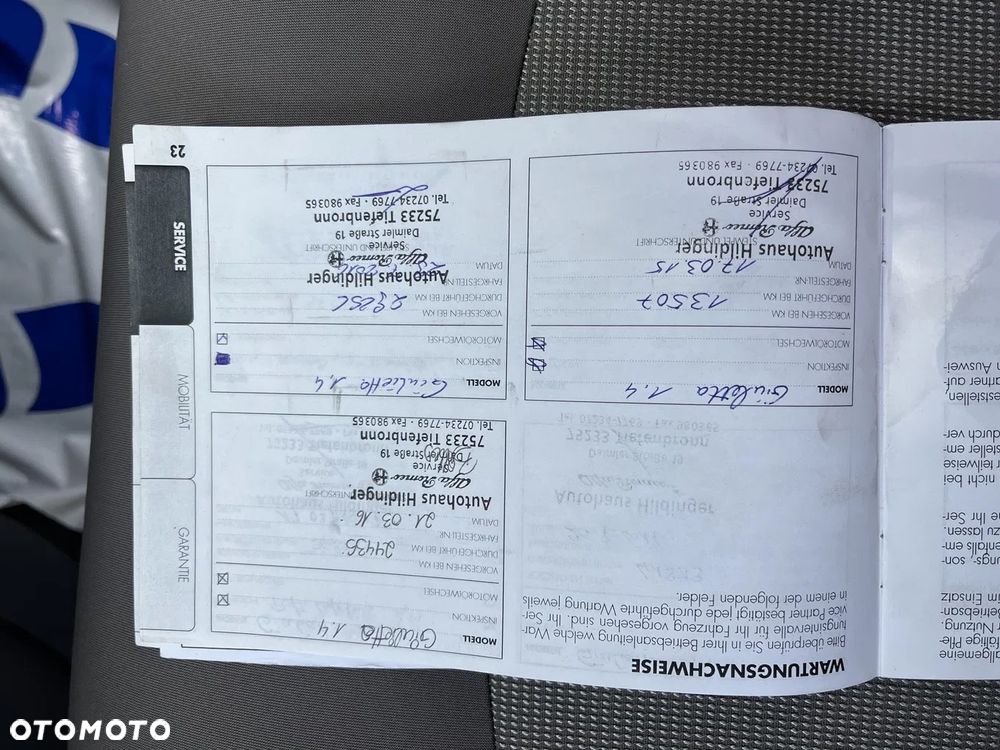 WARTUNGSNACHWEISE
Bitte überprüfen Sie in Ihrer Betriebsanleitung welche War-
tungsintervalle für Ihr Fahrzeug vorgesehen sind. Ihr Ser-
vice Partner bestätigt jede durchgeführte Wartung jeweils
in einem der folgenden Felder.
MODELL Giulietta 1.4
INSPEKTION
MOTORÖLWECHSEL
VORGESEHEN BEI KM
DURCHGEFÜHRT BEI KM 24436
FAHRGESTELL-NR.
DATUM 21.03.16
Autohaus Hildinger
Alfa Romeo
Service
Daimler Straße 19
75233 Tiefenbronn
Tel. 07234-7769 · Fax 980365
MODELL Giulietta 1.4
INSPEKTION
MOTORÖLWECHSEL
VORGESEHEN BEI KM
DURCHGEFÜHRT BEI KM 13507
FAHRGESTELL-NR.
DATUM 17.03.15
STEMPEL UND UNTERSCHRIFT
Autohaus Hildinger
Alfa Romeo
Service
Daimler Straße 19
75233 Tiefenbronn
Tel. 07234-7769 · Fax 980365
MODELL Giulietta 1.4
INSPEKTION
MOTORÖLWECHSEL
VORGESEHEN BEI KM
DURCHGEFÜHRT BEI KM
FAHRGESTELL-NR.
DATUM
Autohaus Hildinger
Alfa Romeo
Service
Daimler Straße 19
75233 Tiefenbronn
Tel. 07234-7769 · Fax 980365
23
GARANTIE
MOBILITAT
SERVICE
allgemeine
Nutzung.
im Einsatz
son-
zu lassen.
Ihr Ser-
nicht bei
teilweise
durch ver-
OTOMOTO